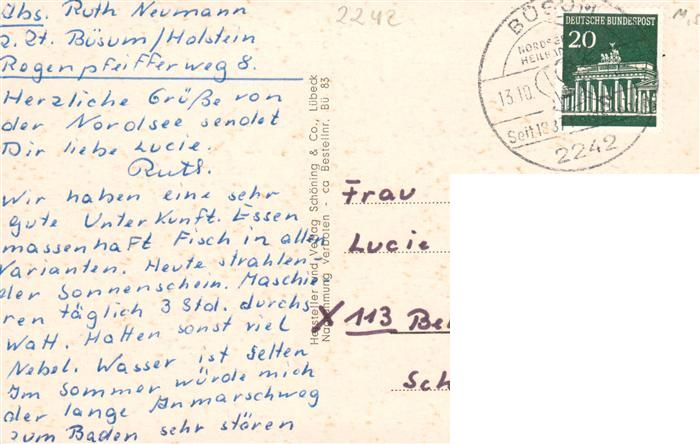 Abs. Ruth Neumann
z. Zt. Büsum/Holstein
Rogenpfeifferweg 8.
Herzliche Grüße von
der Nordsee sendet
Dir liebe Lucie.
Ruth.
Wir haben eine sehr
gute Unterkunft. Essen
massenhaft Fisch in allen
Varianten. Heute strahlen-
der Sonnenschein. Maschie-
ren täglich 3 Std. durchs
Watt. Hatten sonst viel
Nebel. Wasser ist selten
Im Sommer würde mich
der lange Anmarschweg
zum Baden sehr stören
Hersteller und Verlag Schöning & Co., Lübeck
Nachahmung verboten - ca Bestellnr. Bü 83
2242
BÜSUM
NORDSEE
HEIL
13.10.
Seit 183
2242
DEUTSCHE BUNDESPOST
20
Frau
Lucie
X 113 Be
Sch